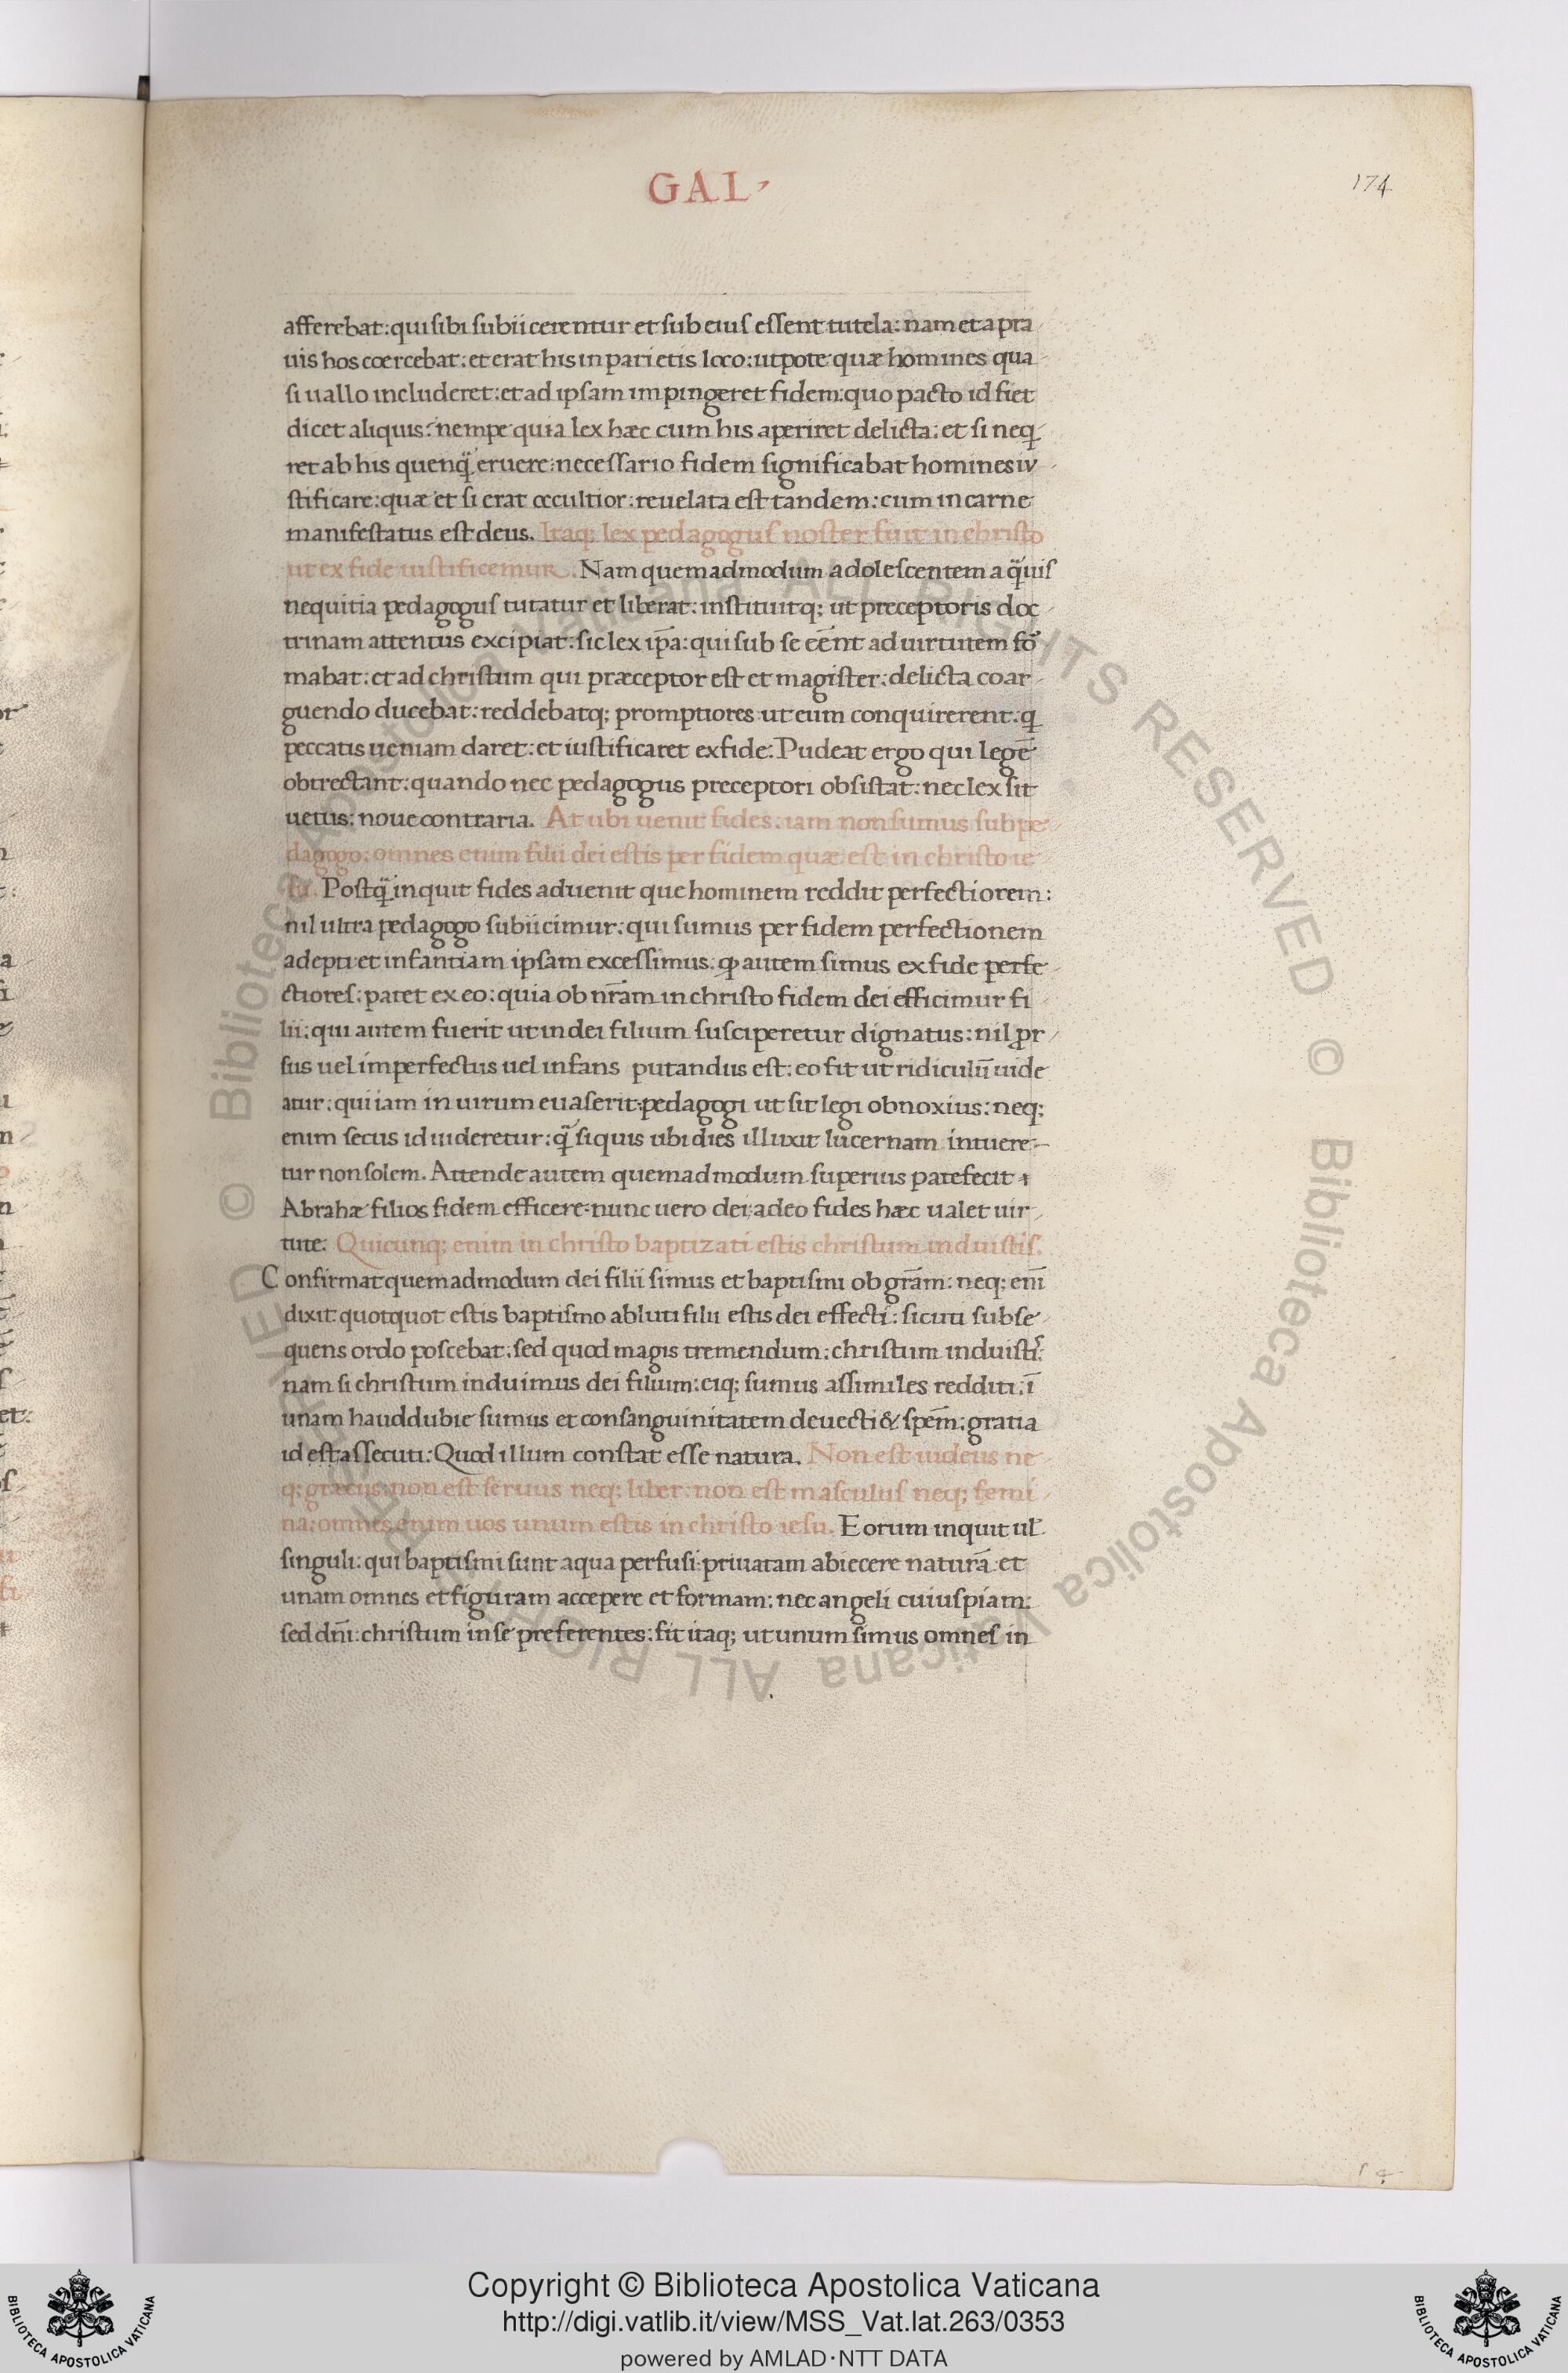 GAL
174
afferebat: qui sibi subiicerentur et sub eius essent tutela: nam et a pra
uis hos coercebat: et erat his in parietis loco: utpote quæ homines qua
si uallo includeret: et ad ipsam impingeret fidem: quo pacto id fiet
dicet aliquis: nempe quia lex hæc cum his aperiret delicta: et si neq̃
ret ab his quenq̃ eruere: necessario fidem significabat homines iu
stificare: quæ et si erat occultior: reuelata est tandem: cum in carne
manifestatus est deus. Itaq; lex pedagogus noster fuit in christo
ut ex fide iustificemur. Nam quemadmodum adolescentem a q̃uis
nequitia pedagogus tutatur et liberat: instituitq; ut preceptoris doc
trinam attentus excipiat: sic lex ip̃a: qui sub se eẽnt ad uirtutem fo᷑
mabat: et ad christum qui præceptor est et magister: delicta coar
guendo ducebat: reddebatq; promptiores ut eum conquirerent: q̃
peccatis ueniam daret: et iustificaret ex fide: Pudeat ergo qui legẽ
obtrectant: quando nec pedagogus preceptori obsistat: nec lex sit
uetus: noue contraria. At ubi uenit fides: iam non sumus sub pe
dagogo: omnes enim filii dei estis per fidem quæ est in christo ie
su. Postq̃ inquit fides aduenit que hominem reddit perfectiorem:
nil ultra pedagogo subiicimur: qui sumus per fidem perfectionem
adepti et infantiam ipsam excessimus: ꝙ autem simus ex fide perfe
ctiores: patet ex eo: quia ob nr̃am in christo fidem dei efficimur fi
lii: qui autem fuerit ut in dei filium susciperetur dignatus: nil ꝓr
sus uel imperfectus uel infans putandus est: eo fit ut ridiculũ uide
atur: qui iam in uirum euaserit: pedagogi ut sit legi obnoxius: neq;
enim secus id uideretur: q̃ siquis ubi dies illuxit lucernam intuere
tur non solem. Attende autem quemadmodum superius patefecit
Abrahæ filios fidem efficere: nunc uero dei: adeo fides hæc ualet uir
tute. Quicunq; enim in christo baptizati estis christum induistis.
Confirmat quemadmodum dei filii simus et baptismi ob gr̃am: neq; enĩ
dixit: quotquot estis baptismo abluti filii estis dei effecti: sicuti subse
quens ordo poscebat: sed quod magis tremendum: christum induistis:
nam si christum induimus dei filium: eiq; sumus assimiles redditi: ĩ
unam hauddubie sumus et consanguinitatem deuecti & spẽm: gratia
id est assecuti: Quod illum constat esse natura. Non est iudeus ne
q; græcus: non est seruus neq; liber: non est masculus neq; femi
na: omnes enim uos unum estis in christo iesu. Eorum inquit ul̃
singuli: qui baptismi sunt aqua perfusi: priuatam abiecere naturã et
unam omnes et figuram accepere et formam: nec angeli cuiuspiam:
sed dñi: christum in se preferentes: fit itaq; ut unum simus omnes in
Copyright © Biblioteca Apostolica Vaticana
http://digi.vatlib.it/view/MSS_Vat.lat.263/0353
powered by AMLAD·NTT DATA
BIBLIOTECA APOSTOLICA VATICANA
BIBLIOTECA APOSTOLICA VATICANA
© Biblioteca Apostolica Vaticana ALL RIGHTS RESERVED © Biblioteca Apostolica Vaticana ALL RIGHTS RESERVED